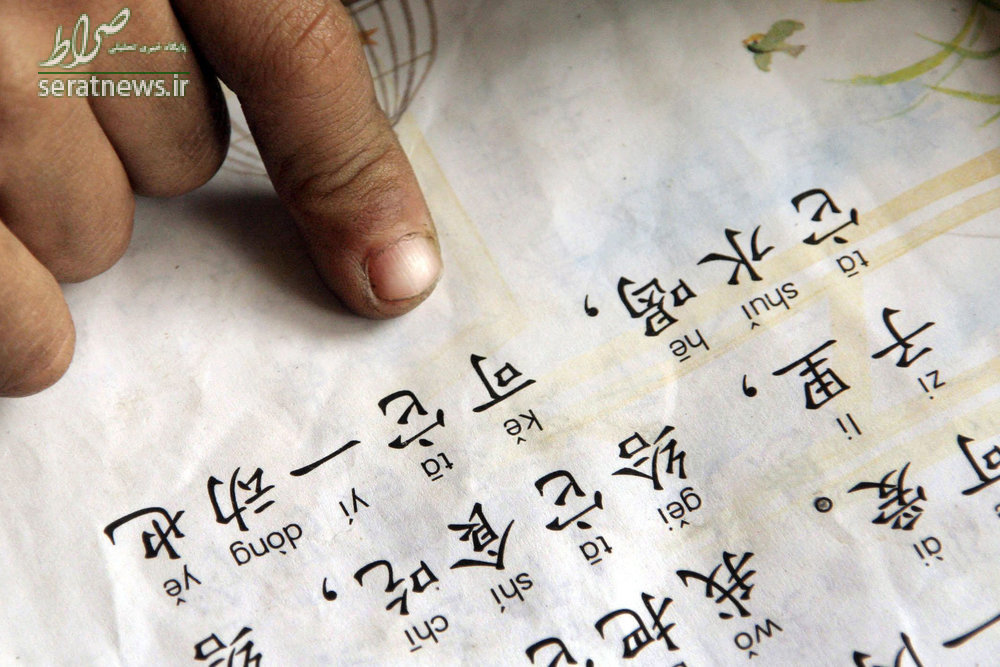 صراط
پایگاه خبری تحلیلی
seratnews.ir
ài wǒ
可爱。我把它
zi li gěi tā shí chī
子里，给它食吃，给
tā shuǐ hē kě tā yí dòng yě
它水喝，可它一动也